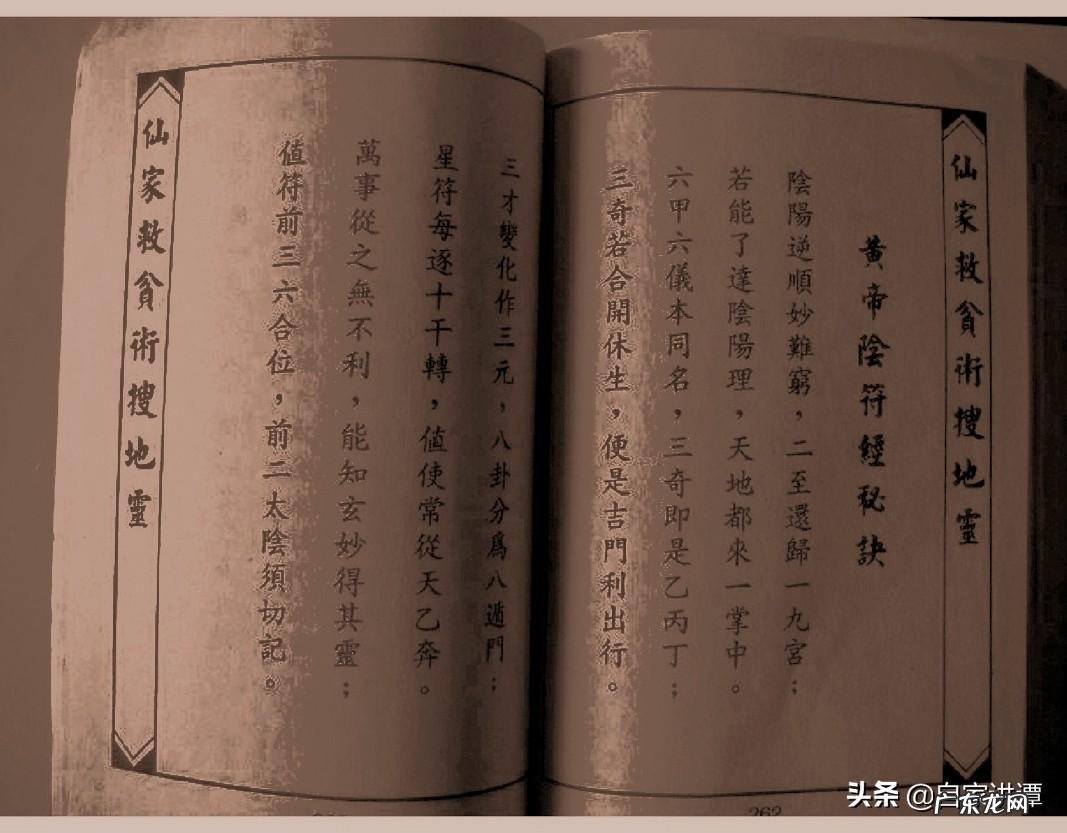 仙家救貧術搜地靈
黃帝陰符經秘訣
陰陽逆順妙難窮，二至還歸一九宮；
若能了達陰陽理，天地都來一掌中。
六甲六儀本同名，三奇即是乙丙丁；
三奇若合開休生，便是吉門利出行。
262
三才變化作三元，八卦分爲八遁門；
星符每逐十干轉，值使常從天乙奔。
萬事從之無不利，能知玄妙得其靈；
値符前三六合位，前二太陰須切記。
仙家救貧術搜地靈
头条 @自家讲谭
广东龙网